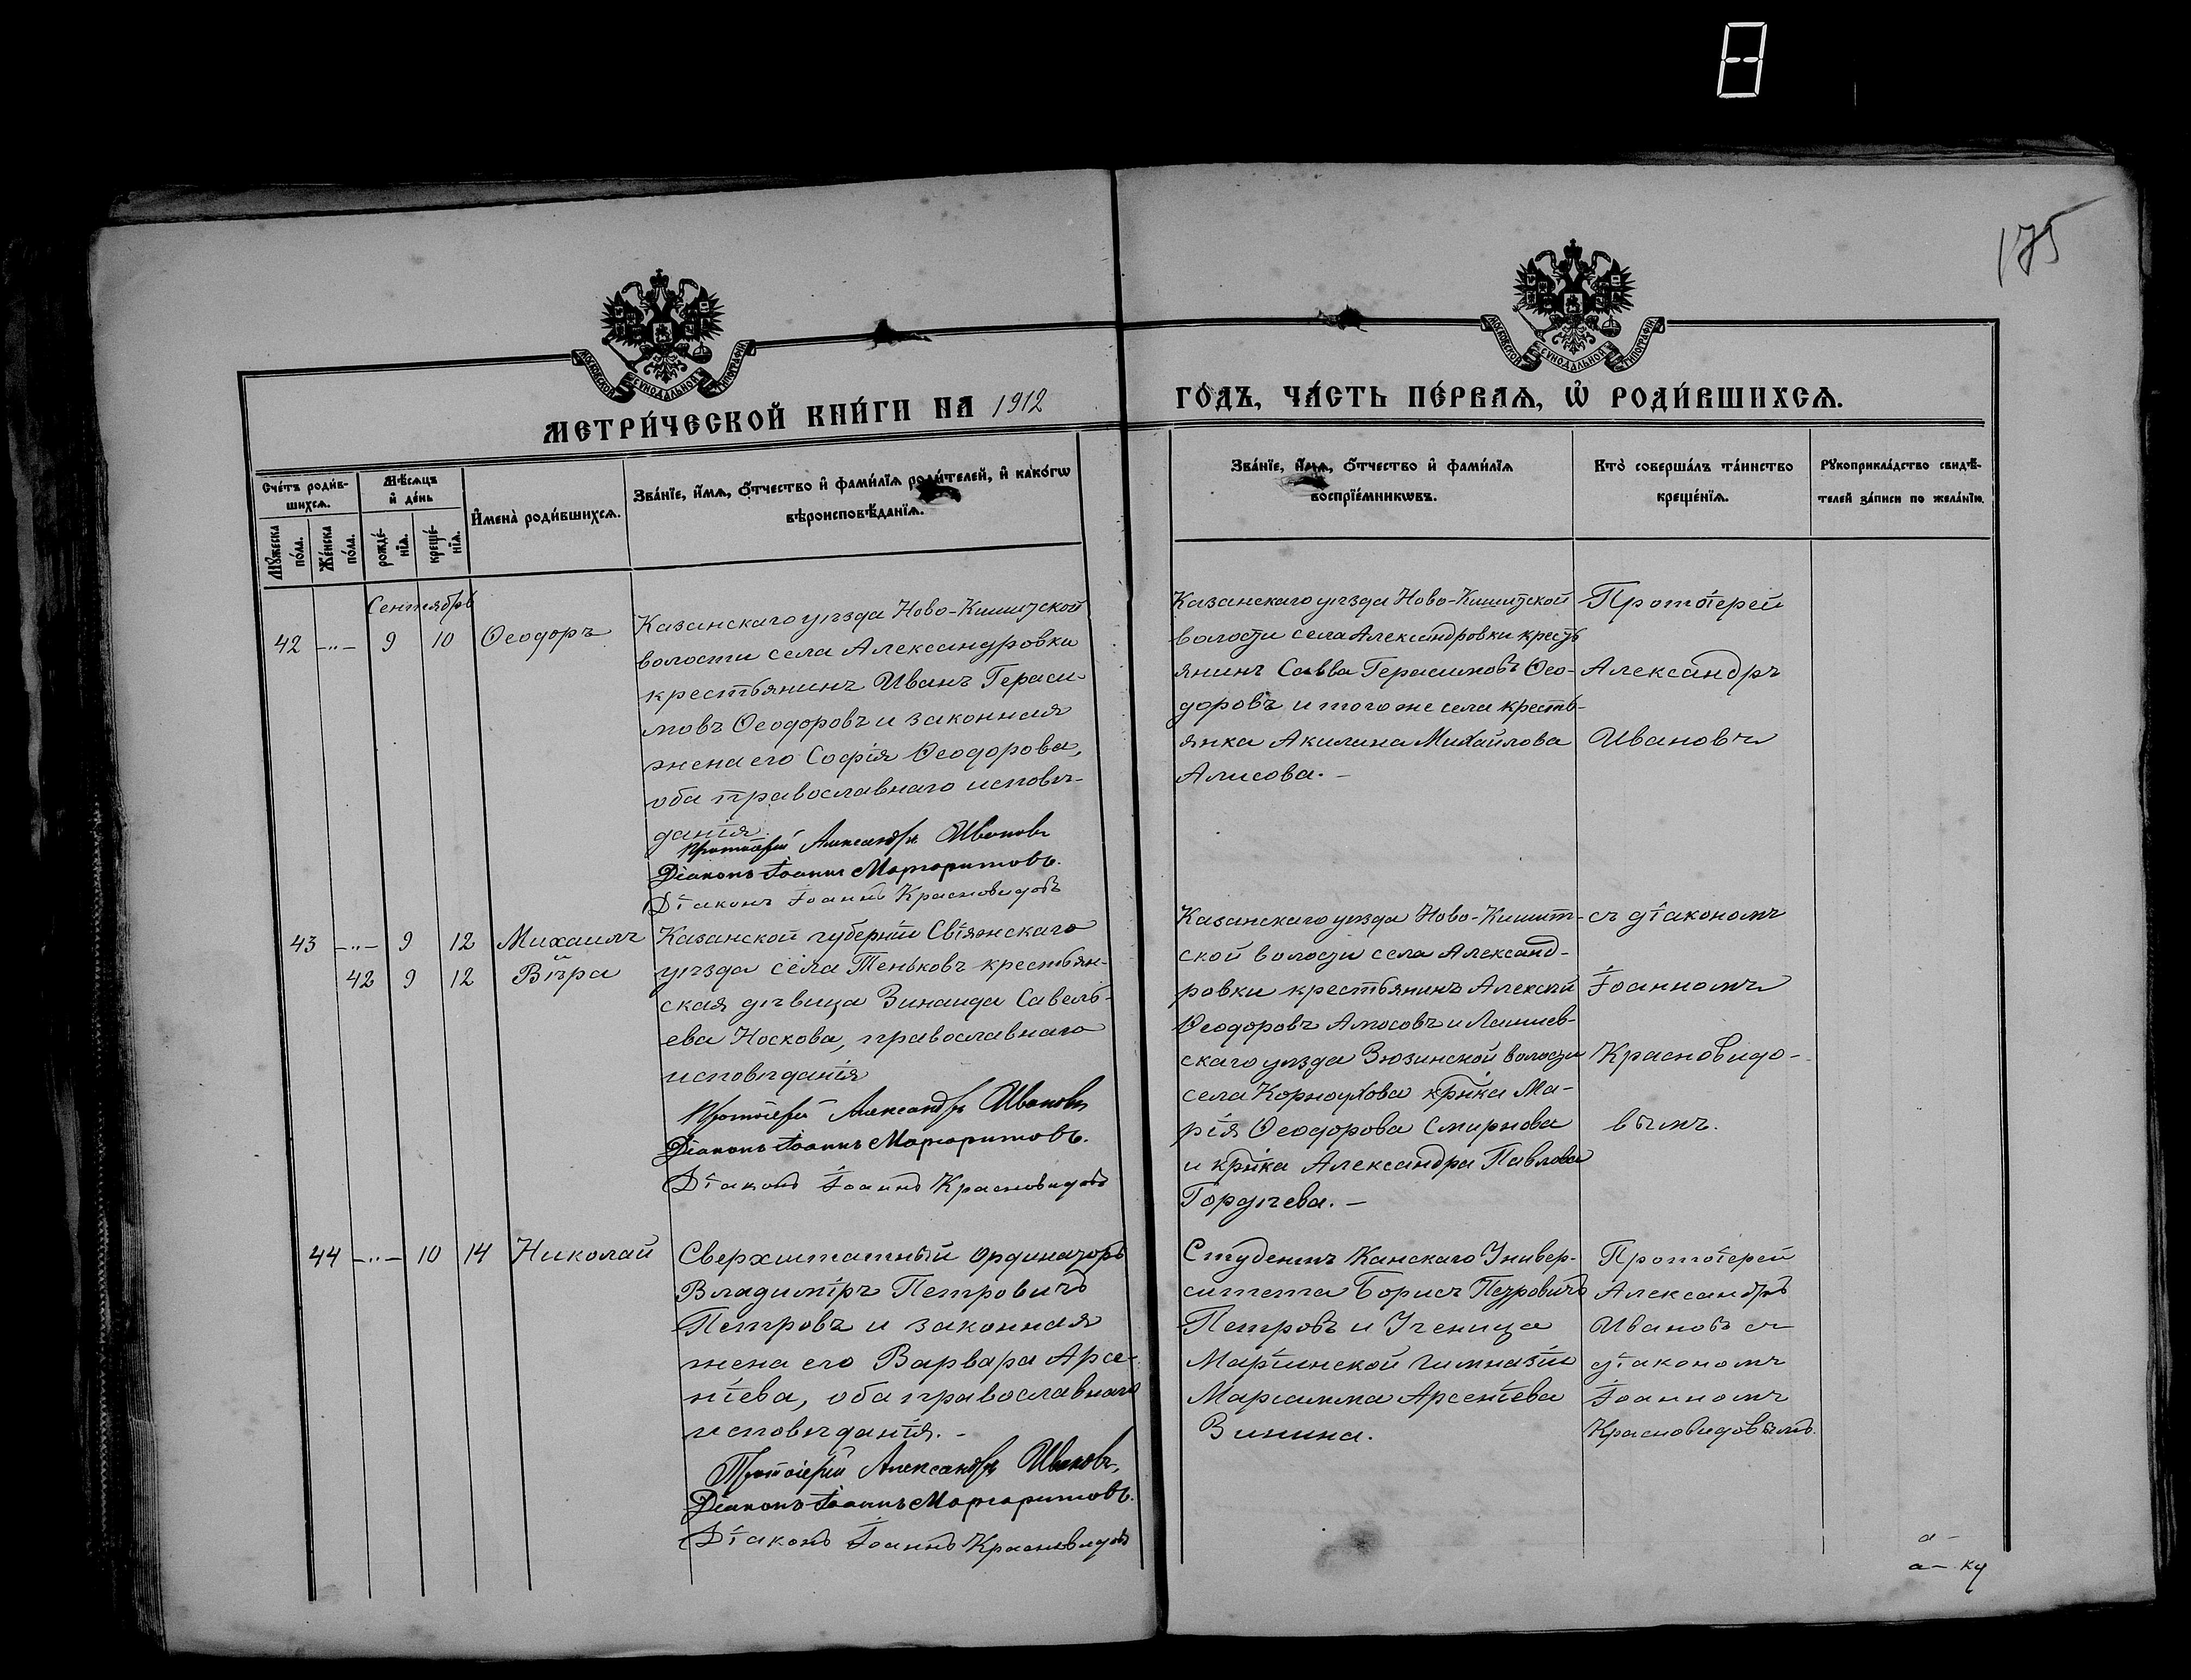 175
МОСКОВСКОЙ СѴНОДАЛЬНОЙ ТИПОГРАФІИ
МОСКОВСКОЙ СѴНОДАЛЬНОЙ ТИПОГРАФІИ
МЕТРИ́ЧЕСКОЙ КНИ́ГИ НА 1912
ГО́ДЪ, ЧА́СТЬ ПЕ́РВАѦ, Ѡ҆ РОДИ́ВШИХСѦ.
Сче́тъ роди́в-
шихсѧ.
Мꙋ́жеска по́ла.
Же́нска по́ла.
Мѣ́сѧцъ и҆ де́нь
рожде́-нїѧ.
креще́-нїѧ.
И҆мена̀ роди́вшихсѧ.
Зва́нїе, и҆́мѧ, ѻ҆́тчество и҆ фами́лїѧ роди́телей, и҆ како́гѡ
вѣроисповѣ́данїѧ.
Зва́нїе, и҆́мѧ, ѻ҆́тчество и҆ фами́лїѧ
воспрїе́мникѡвъ.
Кто̀ соверша́лъ та́инство
креще́нїѧ.
Рꙋкоприкла́дство свидѣ́-
телей за́писи по жела́нїю.
Сентябрь
42 -"- 9 10 Ѳеодоръ
Казанскаго уѣзда Ново-Кишитской
волости села Александровки
крестьянинъ Иванъ Гераси-
мовъ Ѳеодоровъ и законная
жена его Софія Ѳеодорова,
оба православнаго исповѣ-
данія.
Протоіерей Александръ Ивановъ
Діаконъ Іоаннъ Маргаритовъ.
Діаконъ Іоаннъ Красновидовъ
Казанскаго уѣзда Ново-Кишитской
волости села Александровки кресть
янинъ Савва Герасимовъ Ѳео-
доровъ и того же села кресть-
янка Акилина Михайлова
Алисова. -
Протоіерей
Александръ
Ивановъ
43 -"- 9 12 Михаилъ
и
42 9 12 Вѣра
Казанской губерніи Свіяжскаго
уѣзда села Теньковъ крестьян-
ская дѣвица Зинаида Савель-
ева Носкова, православнаго
исповѣданія
Протоіерей Александръ Ивановъ
Діаконъ Іоаннъ Маргаритовъ.
Діаконъ Іоаннъ Красновидовъ
Казанскаго уѣзда Ново-Кишит-
ской волости села Александ-
ровки крестьянинъ Алексѣй
Ѳеодоровъ Амосовъ и Лаишев-
скаго уѣзда Зюзинской волости
села Корноухова кр̃нка Ма-
рія Ѳеодорова Смирнова
и кр̃нка Александра Павлова
Гордѣева. -
съ діакономъ
Іоанномъ
Красновидо-
вымъ.
44 -"- 10 14 Николай
Сверхштатный ординаторъ
Владиміръ Петровичъ
Петровъ и законная
жена его Варвара Арсе-
ніева, оба православнаго
исповѣданія. -
Протоіерей Александръ Ивановъ,
Діаконъ Іоаннъ Маргаритовъ.
Діаконъ Іоаннъ Красновидовъ
Студентъ Канскаго Универ-
ситета Борисъ Петровичъ
Петровъ и Ученица
Маріинской гимназіи
Маріамма Арсеніева
Зинина.
Протоіерей
Александръ
Ивановъ съ
діакономъ
Іоанномъ
Красновидовымъ.
а -
а - ку